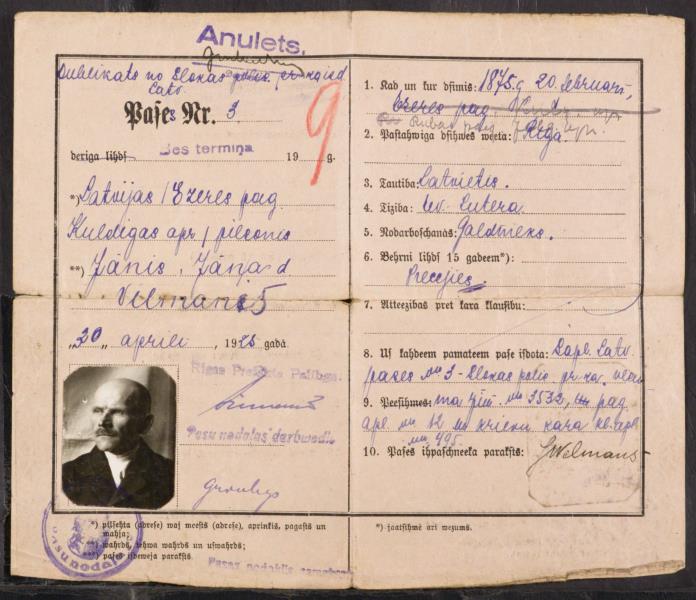 Anulets.
Dublikats no Slokas
Latv.
Pase Nr. 3
9
deriga lihds Bes termiņa 19 g.
*) Latvijas / Ezeres pag.
Kuldigas apr / pilsonis
**) Jānis, Jāņa d
Vilmanis
„20„ aprili 1925 gadā.
Rigas Prefekta Palihgs:
Pasu nodaļas darbwedis
*) pilsehta (adrese) waj meests (adrese), aprinkis, pagasts un
mahja;
**) wahrds, tehwa wahrds un uswahrds;
***) pases isdeweja paraksts.
Pasu nodaļ
1. Kad un kur dsimis: 1875. g 20. februarī,
Ezeres pag,
Rubas pag
2. Pastahwiga dsihwes weeta: Rīgā.
3. Tautiba: Latvietis.
4. Tiziba: Ev. Lutera
5. Nodarboschanās: Galdnieks.
6. Behrni lihds 15 gadeem*):
Precejies
7. Atteezibas pret kara klausibu:
8. Us kahdeem pamateem pase isdota: Sapl. Latv.
pases № 3 - Slokas polic
9. Peesihmes: № 3532, pag
apl № 12 un krievu kara
№ 495.
10. Pases ihpaschneeka paraksts: JWelmans
*) jaatsihmē ari wezums.